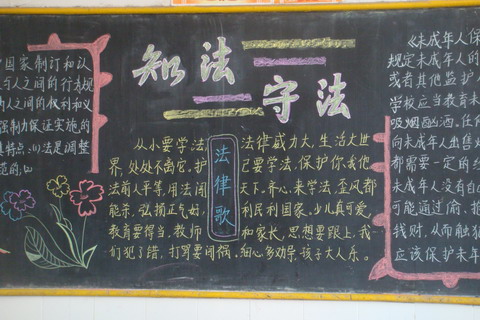 国家制订和认
与人之间的行为规
人之间的权利和义
强制力保证实施的
特点:(1)法是调整
知法
守法
法律歌
从小要学法,法律威力大,生活大世
界,处处不离它。护己要学法,保护你我他
法前人平等,用法闯天下。齐心,来学法,歪风都
能杀,弘扬正气好,利民利国家。少儿真可爱
教育要得当,教师和家长,思想要跟上,我
们犯了错,打骂要闯祸。细心,多劝导,孩子大人乐。
《未成年人保
规定未成年人的
或者其他监护人
学校应当教育未
吸烟酗酒。任何
向未成年人出售
都需要一定的经
未成年人没有自
可能通过偷、抢
钱财,从而触犯
应该保护未年